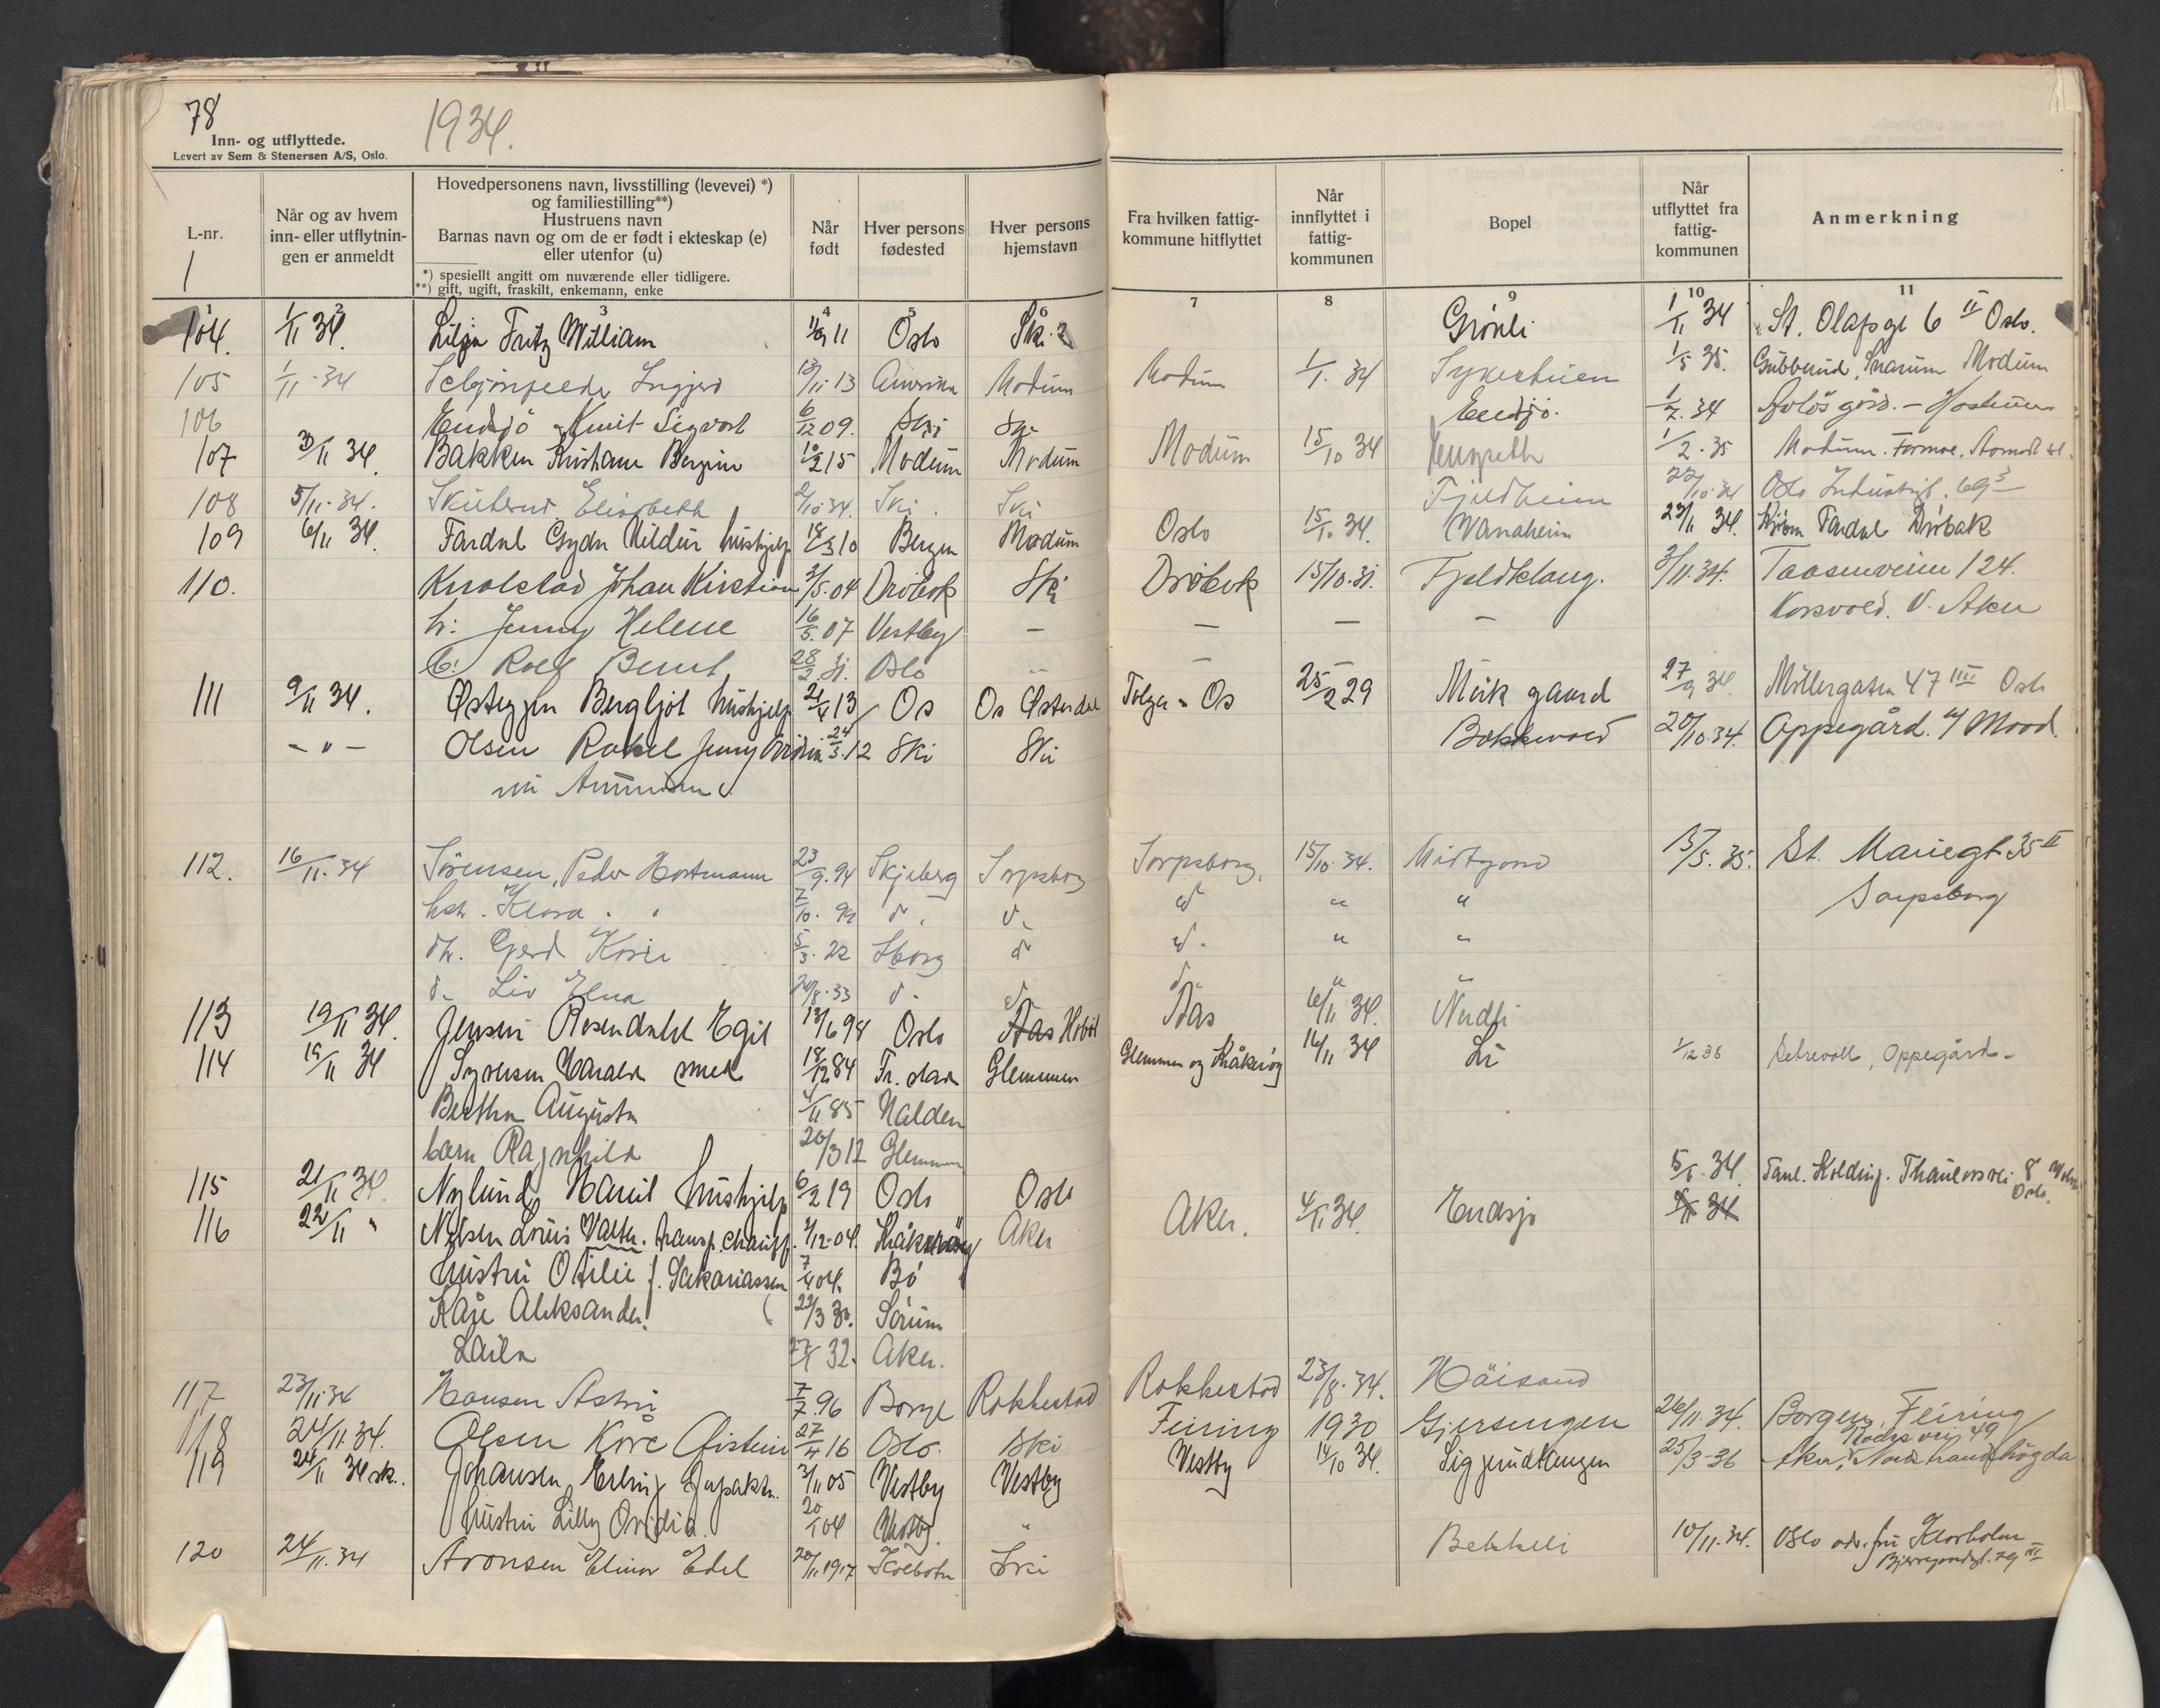 78
1934.
Inn- og utflyttede.
Levert av Sem & Stenersen A/S, Oslo.
L-nr.
1
Når og av hvem
inn- eller utflytnin-
gen er anmeldt
Hovedpersonens navn, livsstilling (levevei) *)
og familiestilling**)
Hustruens navn
Barnas navn og om de er født i ekteskap (e)
eller utenfor (u)
*) spesielt angitt om nuværende eller tidligere.
**) gift, ugift, fraskilt, enkemann, enke
Når
født
Hver persons
fødested
Hver persons
hjemstavn
Fra hvilken fattig-
kommune hitflyttet
Når
innflyttet i
fattig-
kommunen
Bopel
Når
utflyttet fra
fattig-
kommunen
Anmerkning
1 2 3 4 5 6 7 8 9 10 11
104. 1/11 34. Lilja Fritz William 11 Oslo Ski Grönli 1/11 34 St. Olafsgt 6 II Oslo.
105 1/11-34 Ingjerd 13/11 13 Amerika Modum Modum 1/1. 34 1/5 35. Snarum Modum
106 Endsjö Knut Sigvart 6/12 09. Ski Ski Endsjö. 1/7.34
107 3/11 34. Bakken Kristiane 10/2 15 Modum Modum Modum 15/10 34 1/2.35 Modum.
108 5/11-34. Elisabeth 2/10.34. Ski. Ski Fjeldheim 22/10.34 Oslo Industrigt. 69 3
109 6/11 34. Fardal Gyda Hildur hushjelp 18/3 10 Bergen Modum Oslo 15/1. 34. Vanaheim 23/11 34. Fardal Dröbak
110. Knalstad Johan Kristian 3/5.04 Dröbak Ski Dröbak 15/10.31. Fjeldklang. 3/11.34. Taasenveien 124.
Korsvold. V. Aker
h: Jenny Helene 16/5.07 Vestby — — — —
b: Rolf Bernt 28/2.31. Oslo
111 9/11 34. Østeggen Bergljot hushjelp 21/4 13 Os Os Østerdal Tolga - Os 25/2 29 Mörk gaard 27/9 34. Möllergaten 47 IIII Oslo
- " - Olsen Rakel Jenny 24/3.12 Ski Ski 20/10.34. Oppegård.
112. 16/11.34 Sörensen, Peder Hartmann 23/9.94 Skjeberg Sarpsborg Sarpsborg, 15/10.34. Midtgard 15/5.35. St. Mariegt 35 II
Sarpsborg
hstr. Klara 7/10. d. d. d " "
dtr. Gerd Karin 5/3.22 Sborg d d. " "
d. Liv Elna 20/8.33 d. d d. " "
113 19/11 34. Jensen Rosendahl Egil 13/6 98 Oslo Aas Hobøl Aas 6/11 34. Nudli
114 19/11 34 Syversen Harald smed 18/12 84 Fr. stad Glemmen Glemmen og Kråkerøy 16/11 34 Li 1/12 36 Sætrevoll, Oppegård-
Bertha Augusta 4/11 85 Halden
barn Ragnhild 20/3 12 Glemmen
115 21/11 34. Nylund Marit hushjelp 6/2 19 Oslo Oslo 5/1. 34. Kolding. Thaulowsvei 8 Oslo.
116 22/11 " Nilsen Louis Valter. transp. chauff. 1/12-04. Kråkerøy Aker Aker. 4/11 34. Endsjø
hustru Otilie f. Sakariassen 7/4 04. Bö
Kåre Aleksander 22/3 30. Sörum
Laila 27/1 32. Aker.
117 23/11.34 Hansen Astri 7/7.96 Borge Rakkestad Rakkestad 23/8.34.
118 24/11.34. Olsen Kåre Øistein 27/4 16 Oslo. Ski Feiring 1930 Gjersengen 26/11.34. Borgen, Feiring
119 24/11 34 sk. Johansen Erling 3/11 05 Vestby Vestby Vestby 14/10 34. Siggerudtangen 25/3-36 Aker, Nordstrandshögda
hustru Lilly Ovidia. 20/1 04 Vestby "
120 24/11.34 Aronsen Elinor Edel 20/11 1917 Kolbotn Ski Bekkeli 10/11.34. Oslo adr. fru Klarholm